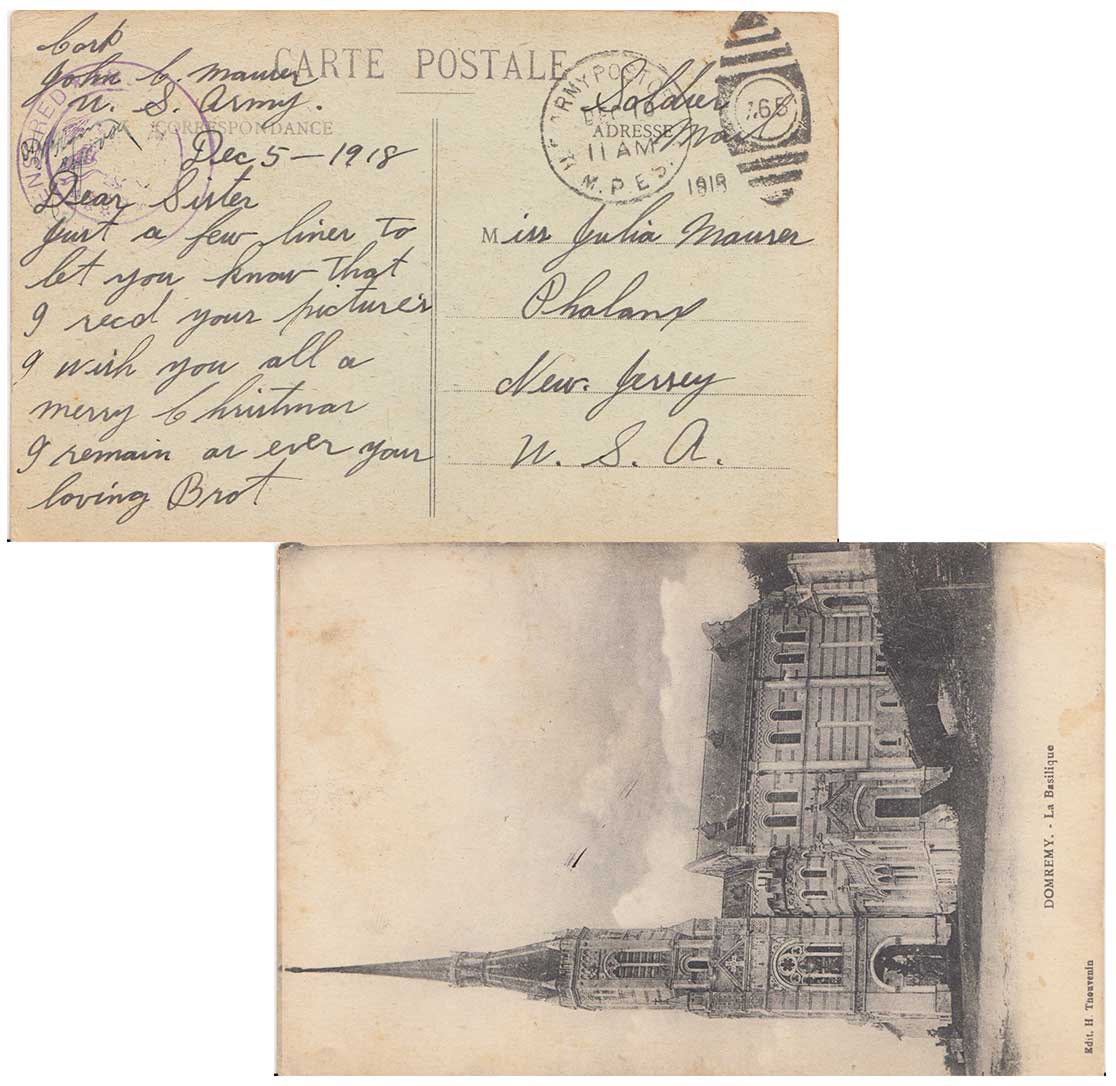 Corp
John C. Maurer
U. S. Army.
CARTE POSTALE
CORRESPONDANCE
CENSORED
Dec 5 - 1918
Dear Sister
Just a few lines to
let you know that
I recd your pictures
I wish you all a
merry Christmas
I remain as ever your
loving Brot
U.S. ARMY POST OFFICE
DEC 10
11 AM
M.P.E.S.
1918
765
Soldier
Mail
ADRESSE
Miss Julia Maurer
Phalanx
New. Jersey
U. S. A.
DOMREMY. - La Basilique
Edit. H. Thouvenin